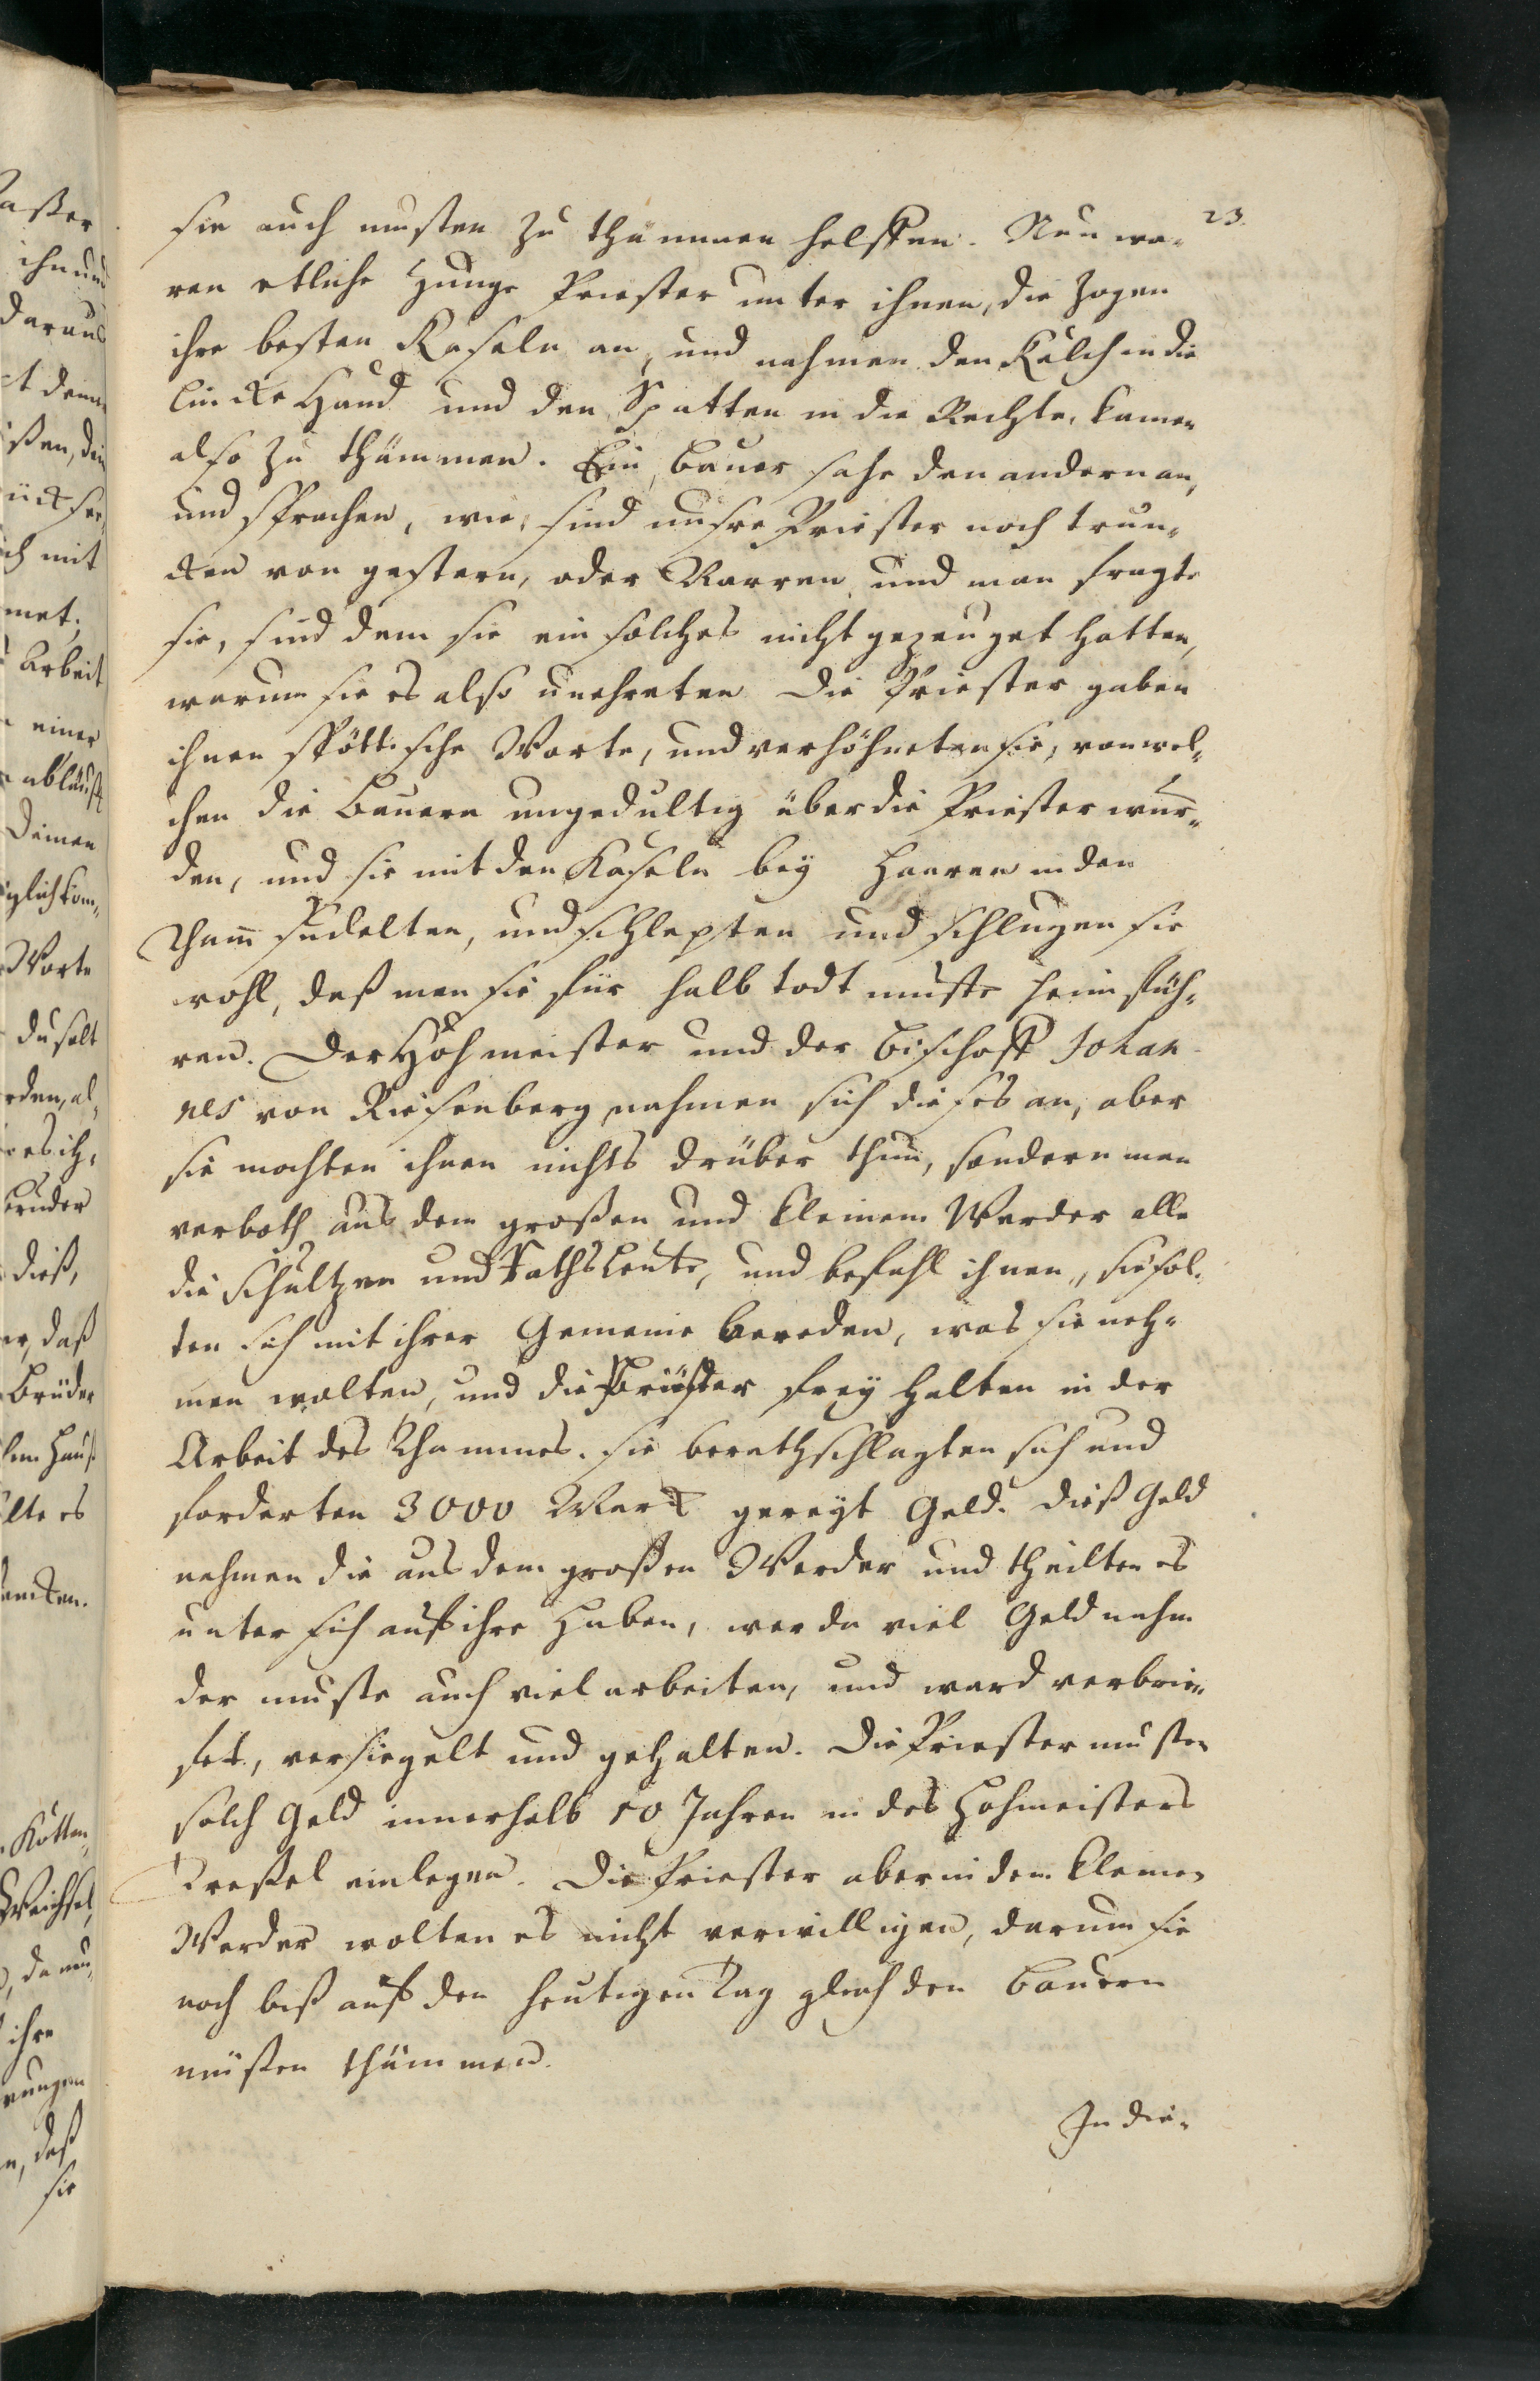 23.
sie auch musten zu thämmen helffen. Nun wa-
ren etliche Junge Priester unter ihnen, die zogen
ihre besten Kaseln an, und nahmen den Kelch in die
lincke Hand und den Spatten in die Rechte, kamen
also zu thämmen. Ein Bauer sahe den andern an,
und sprachen, wie, sind unsre Priester noch trun-
cken von gestern, oder Narren, und man fragte
sie, sind dem sie ein solches nicht gezeuget hatten,
warum sie es also unehreten. Die Priester gaben
ihnen spöttische Worte, und verhöhneten sie, von wel-
chen die Bauern ungedultig über die Priester wur-
den, und sie mit den Kaseln bey Haaren in den
Tham sudelten, und schlepten und schlugen sie
wohl, daß man sie für halb todt muste heim füh-
ren. Der Hohmeister und der Bischoff Johan-
nes von Riesenberg nahmen sich dieses an, aber
sie mochten ihnen nichts drüber thun, sondern man
verboth aus dem großen und kleinem Werder alle
die Schultzen und Rathsleute, und befahl ihnen, sie sol-
ten sich mit ihrer Gemeine bereden, was sie neh-
men wolten, und die Priester frey halten in der
Arbeit des Thammes. Sie berathschlagten sich und
forderten 3000 Marck gereyt Geld. Dieß Geld
nahmen die aus dem großen Werder und theilten es
unter sich auf ihre Huben, wer da viel Geld nahm
der muste auch viel arbeiten, und ward verbrie-
fet, versiegelt und gehalten. Die Priester musten
solch Geld innerhalb 10 Jahren in des Hohmeisters
Treßel einlegen. Die Priester aber in dem kleinen
Werder wolten es nicht verwilligen, darum sie
noch biß auf den heutigen Tag gleich den Bauern
müßen thämmen.
In die-